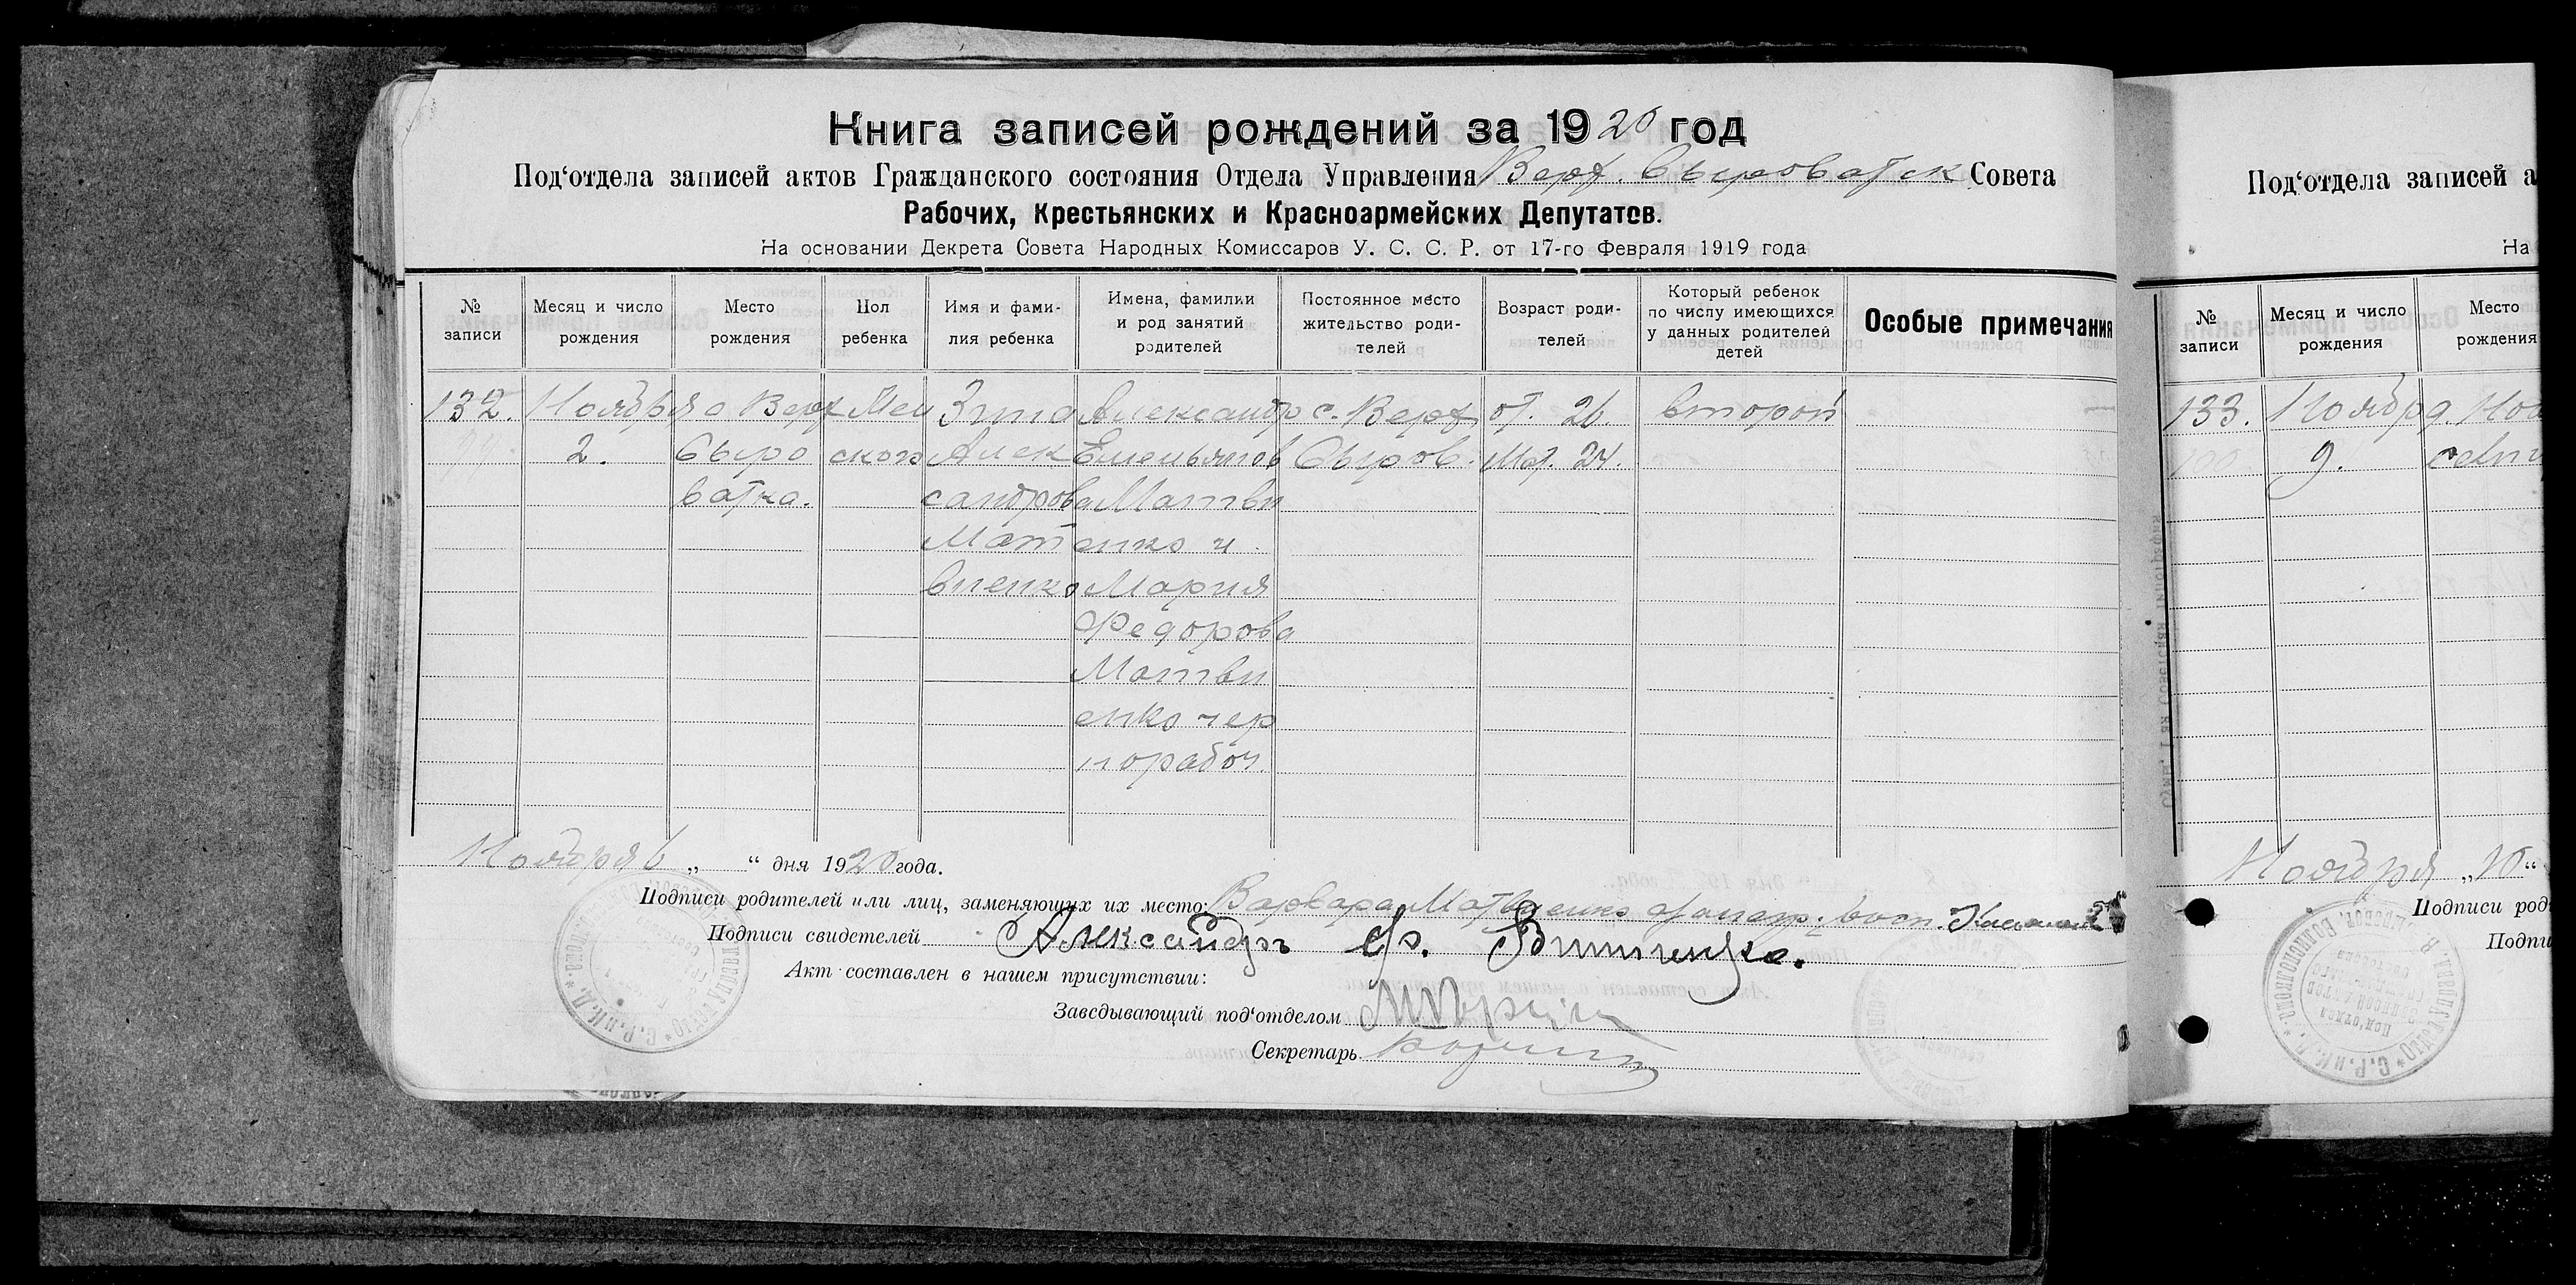 Книга записей рождений за 1920 год
Под‘отдела записей актов Гражданского состояния Отдела Управления Верх. Сыроватск Совета
Рабочих, Крестьянских и Красноармейских Депутатов.
На основании Декрета Совета Народных Комиссаров У. С. С. Р. от 17-го Февраля 1919 года
№ записи
Месяц и число рождения
Место рождения
Пол ребенка
Имя и фами-
лия ребенка
Имена, фамилии
и род занятий
родителей
Постоянное место
жительство роди-
телей
Возраст роди-
телей
Который ребенок
по числу имеющихся
у данных родителей
детей
Особые примечания
132.
Ноября
2.
с Верх
Сыро
ватка.
Жен
ского
Зина
Алек
сандрова
Мат
виенко
Александр
Емельянов
Матви
енко и
Мария
Федорова
Матви
енко чер
норабоч.
с. Верх
Сыров.
от. 26.
мат. 24.
второй
Ноября 6 „ “ дня 1920 года.
Подписи родителей или лиц, заменяющих их место: Варвара Матвиенко
Подписи свидетелей Александръ
Акт составлен в нашем присутствии:
Заведывающий под‘отделом
Секретарь
Под‘отдела записей а
На
№ записи
Месяц и число рождения
Место рождения
133.
Ноября
9.
Ноября „10“
Подписи род
Подпи